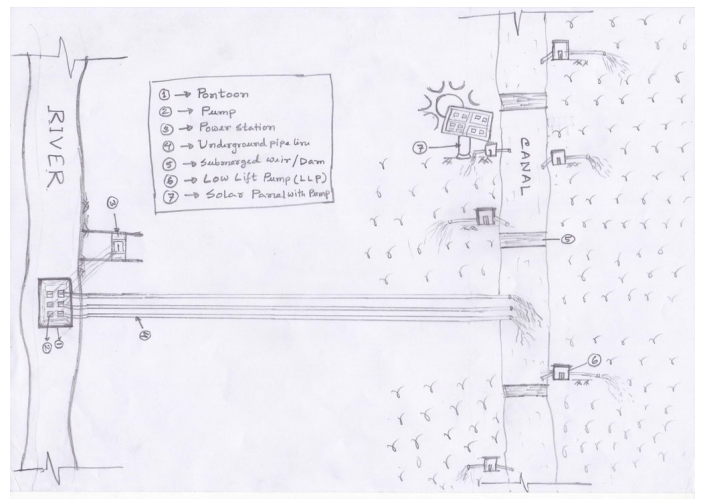 RIVER
① → Pontoon
② → Pump
③ → Power station
④ → Underground pipe line
⑤ → Submerged weir/Dam
⑥ → Low Lift Pump (LLP)
⑦ → Solar Panel with Pump
CANAL
⑦
③
1
⑤
④
⑥